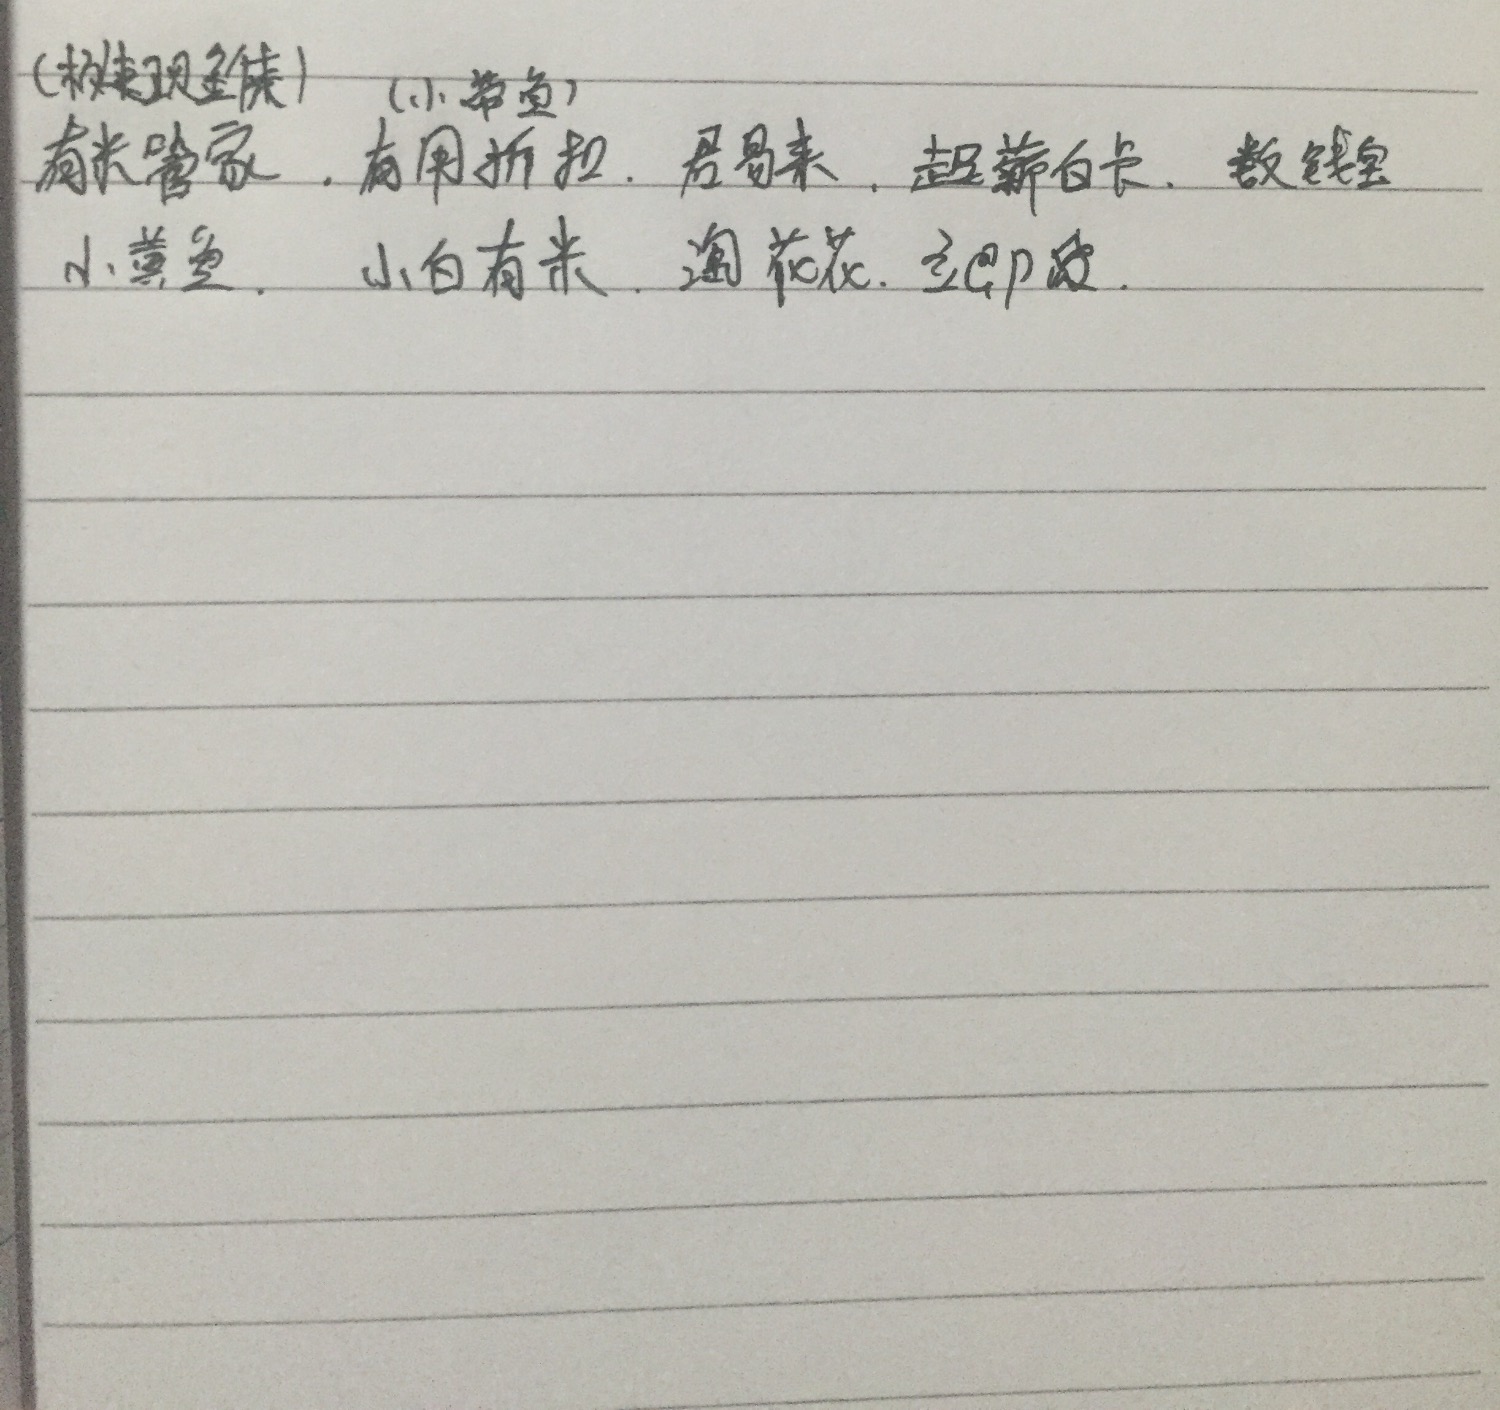 (极速现金侠) (小带鱼)
有米管家. 有用折扣. 君易来. 起薪白卡. 数钱宝
小黄鱼. 小白有米. 淘花花. 立即改.